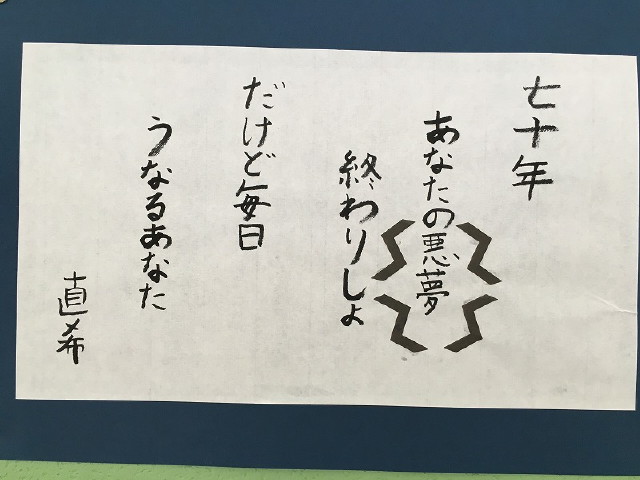 七十年
あなたの悪夢
終わりしょ
だけど毎日
うなるあなた
直希